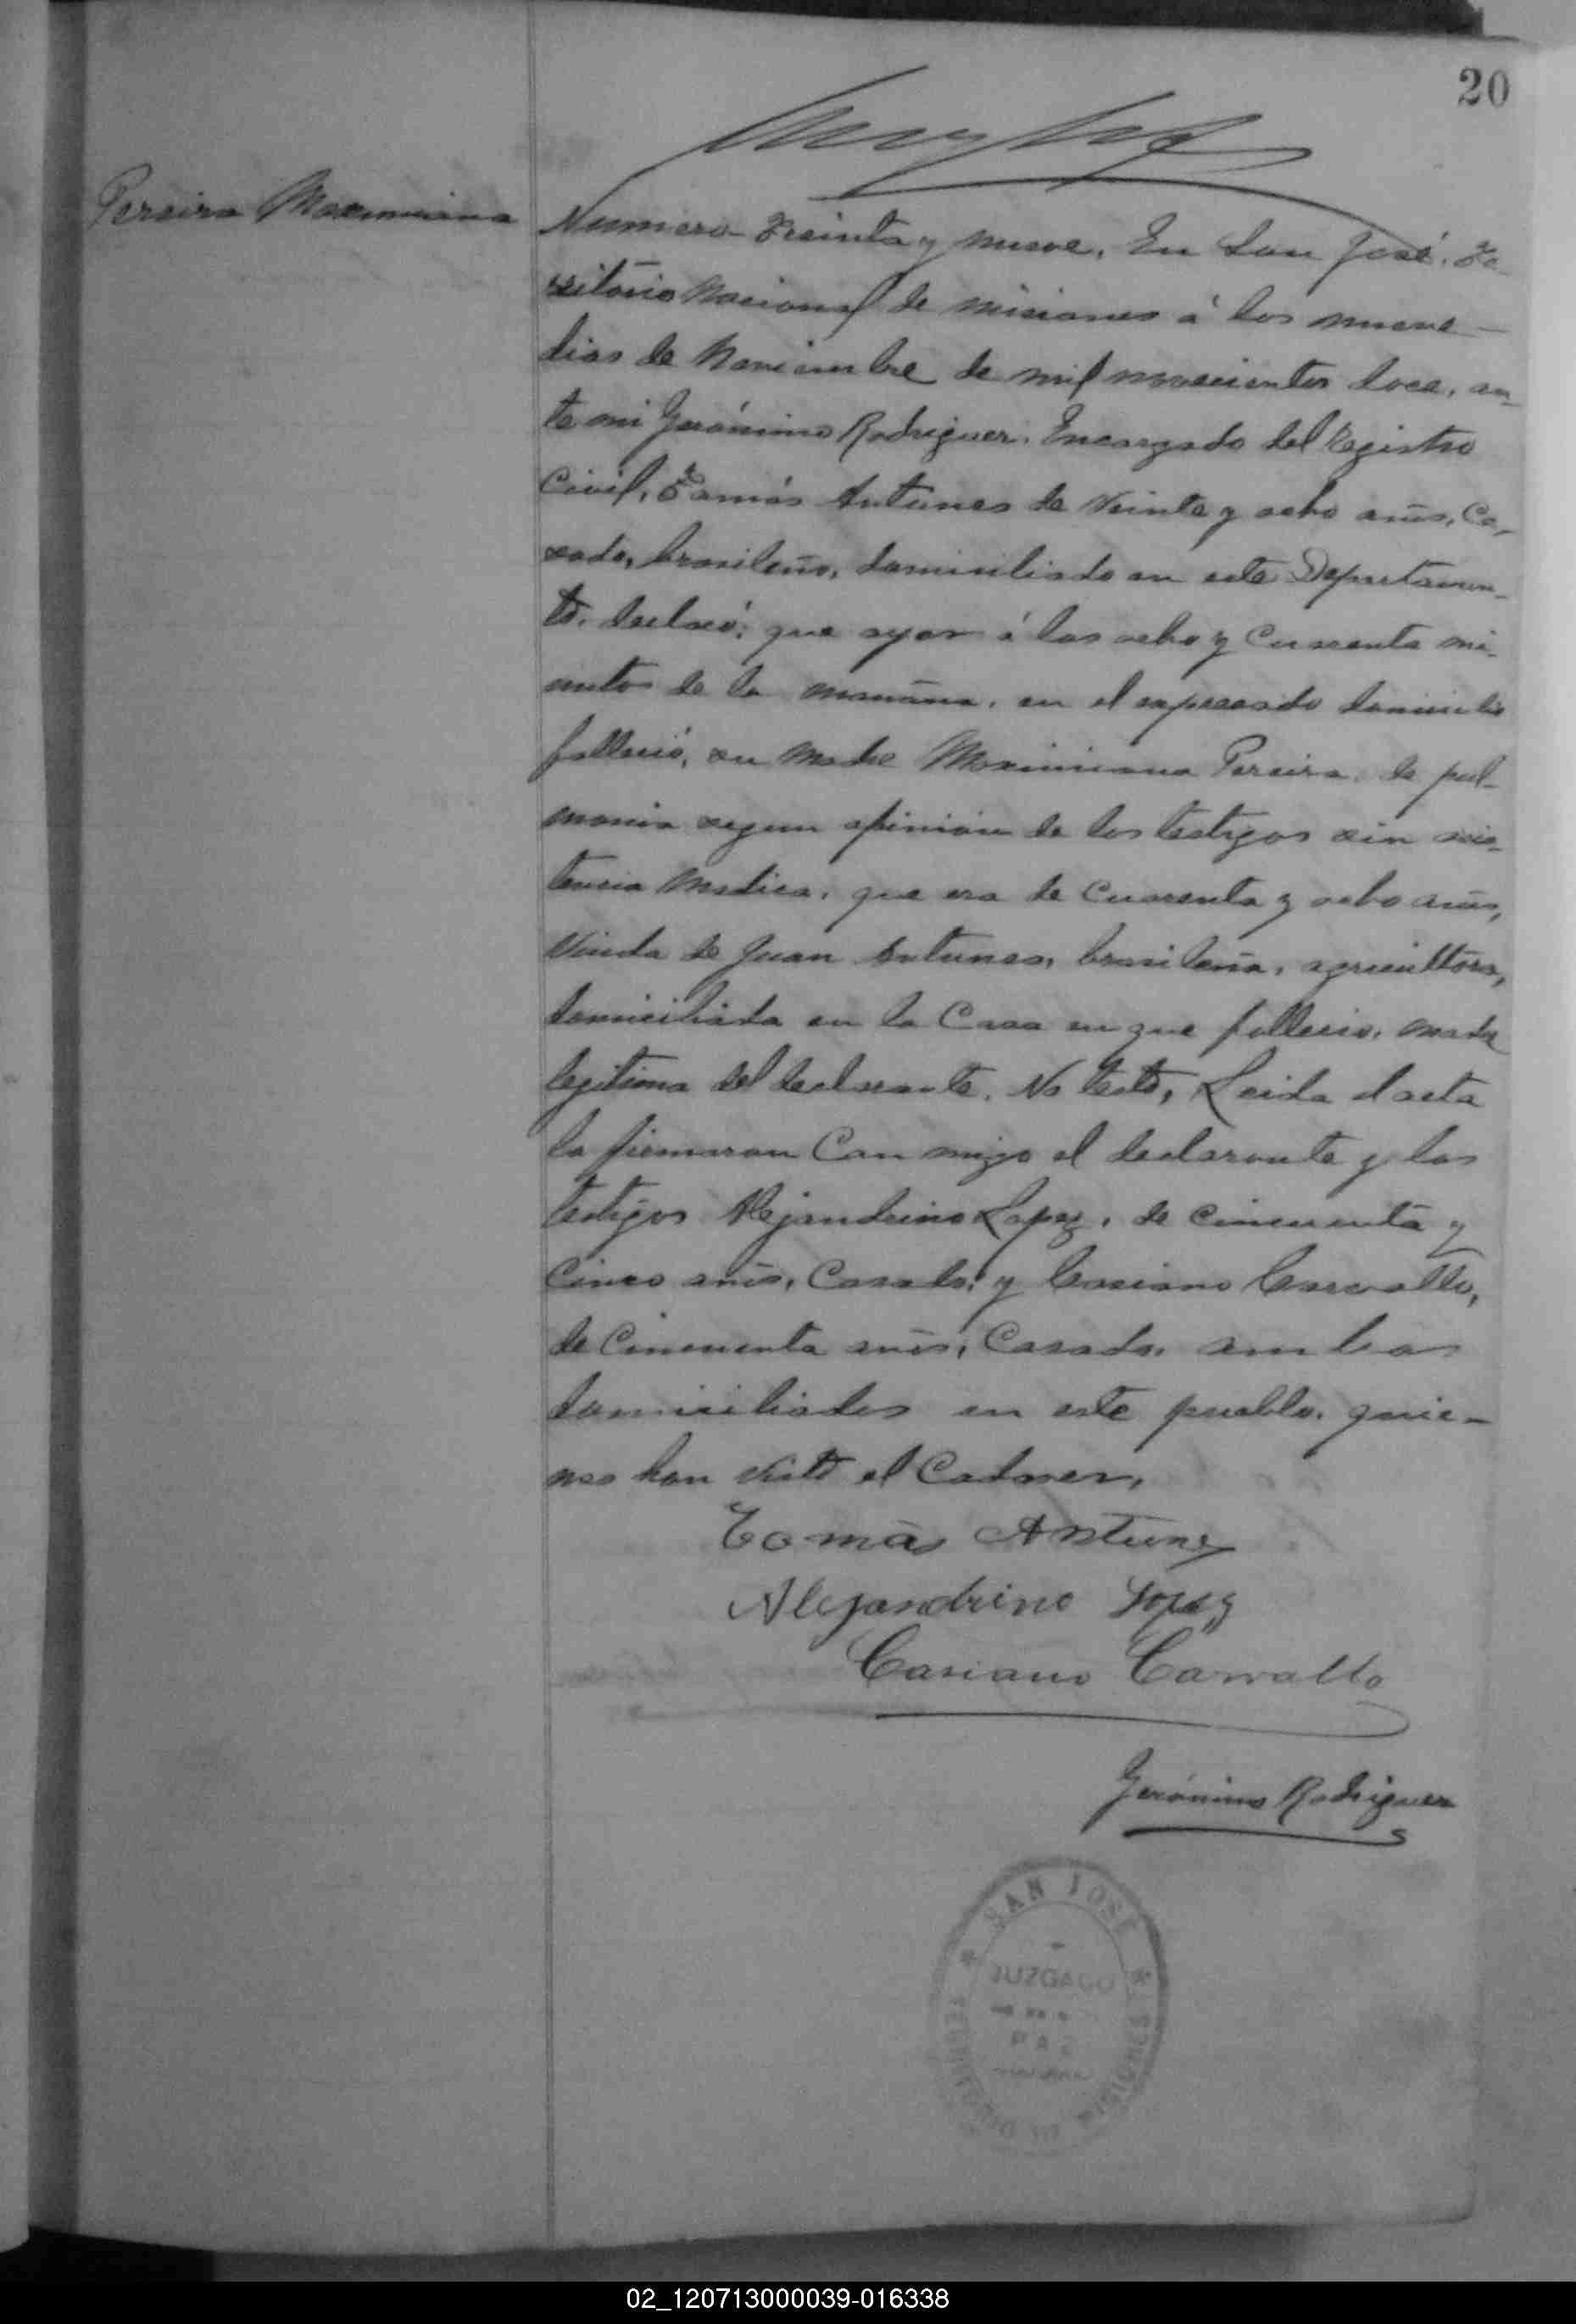 20
Pereira Maximiana
Numero treinta y nueve. En San José. Te-
rritorio Nacional de misiones á los nueve
dias de Noviembre de mil novecientos doce, an-
te mi Gerónimo Rodriguez. Encargado del Registro
Civil, Tomás Antunes de veinte y ocho años, Ca-
sado, brasileño, domiciliado en este Departamen-
to. declaró: que ayer á las ocho y cuarenta mi-
nutos de la mañana, en el expresado domicilio
falleció, su Madre Maximiana Pereira, de pul-
monia segun opinión de los testigos sin asis-
tencia Medica, que era de cuarenta y ocho años,
Viuda de Juan Antunes, brasileña, agricultora,
domiciliada en la Casa en que fallecio, madre
legitima del declarante. No testó, Leida el acta
la firmaron Con migo el declarante y los
testigos Alejandrino Lopez, de cincuenta y
Cinco años, Casado, y Casiano Carvallo,
de Cincuenta años, Casado, ambos
domiciliados en este pueblo, quie-
nes han visto el Cadaver,
Tomás Antunez
Alejandrino Lopez
Casiano Carvallo
Gerónimo Rodriguez
SAN JOSE
JUZGADO
PAZ
TERRITORIO DE MISIONES
02_120713000039-016338